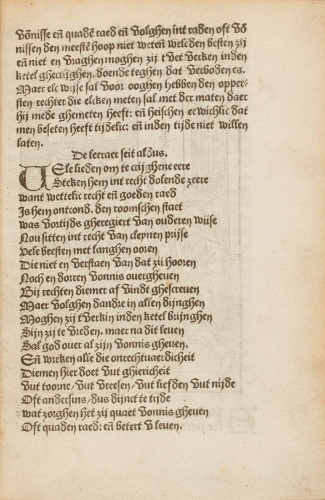 vōnisse eñ quadē raed eñ volghen int raden oft vō
nissen den meestē hoop niet wetēn welc den besten zij
eñ niet en vraghen moghen zij t vet vercken inden
ketel ghecrijghen, doende teghen dat verboden es.
Maer elc wijse sal voor ooghen hebben den opper-
sten rechter die elcken meten sal met der maten daer
hij mede ghemeten heeft: eñ heischen rekwiclic dat
men beseten heeft tijdelic: eñ inden tijde niet willen
laten.
De leeraer seit alzus.
Vele lieden om te crijghene eere
Steken hem int recht dolende zeere
want wettelic recht eñ goeden raed
Is hem ontcond. den roomschen staet
was vortijds gheregiert van ouderen wijse
Nou sitten int recht van cleynen prijse
Vele beesten met langhen ooren
Die niet en verstaen van dat zij hooren
Noch en dorren vonnis overgheven
Bij rechten diemer af vindt ghescreven
Maer volghen dandre in allen dijnghen
Moghen zij t verkin inden ketel brijnghen
Sijn zij te vreden. maer na dit leven
Sal god over al zijn vonnis gheven.
Eñ wreken alle die onrechtuaerdicheit
Diemen hier doet vut ghiericheit
vut toorne/vut vreesen/vut liefden vut nijde
Oft andersins/dus dijnct te tijde
wat zorghen het zij quaet vonnis gheven
Oft quaden raed: eñ betert v leven.